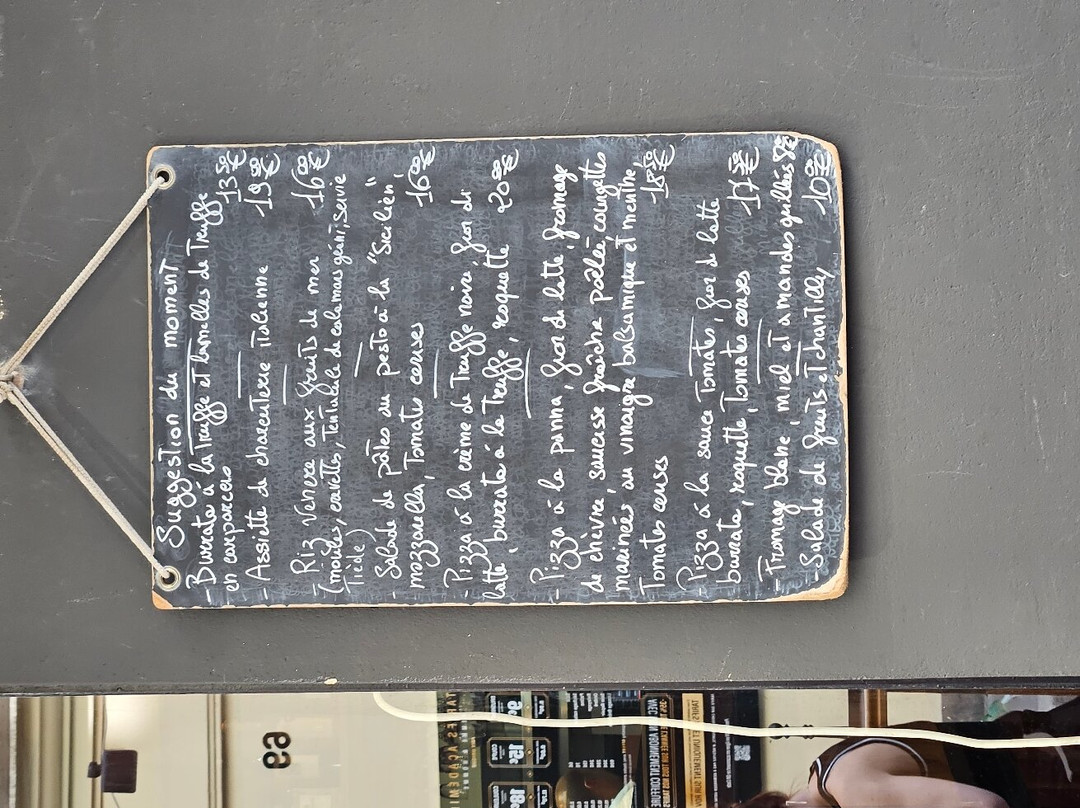 Suggestion du moment
- Burrata à la Truffe et lamelles de Truffe
en carpaccio 13 50€
- Assiette de charcuterie italienne 19 00€
- Riz Venere aux fruits de mer 16 00€
(moules, crevettes, Tentacule de calamars géant, servie
Tiède)
- Salade de pâtes au pesto à la "Sicilien",
mozzarella, Tomates cerises 16 00€
- Pizza à la crème de Truffe noire, fior di
latte, burrata à la Truffe, roquette 20 00€
- Pizza à la panna, fior di latte, fromage
de chèvre, saucisse fraîche poêlée, courgettes
marinées au vinaigre balsamique et menthe,
Tomates cerises 18 50€
Pizza à la sauce Tomates, fior di latte
burrata, roquette, Tomates cerises 17 50€
- Fromage blanc, miel et amandes grillées 8€
- Salade de fruits et chantilly 10 00€
69